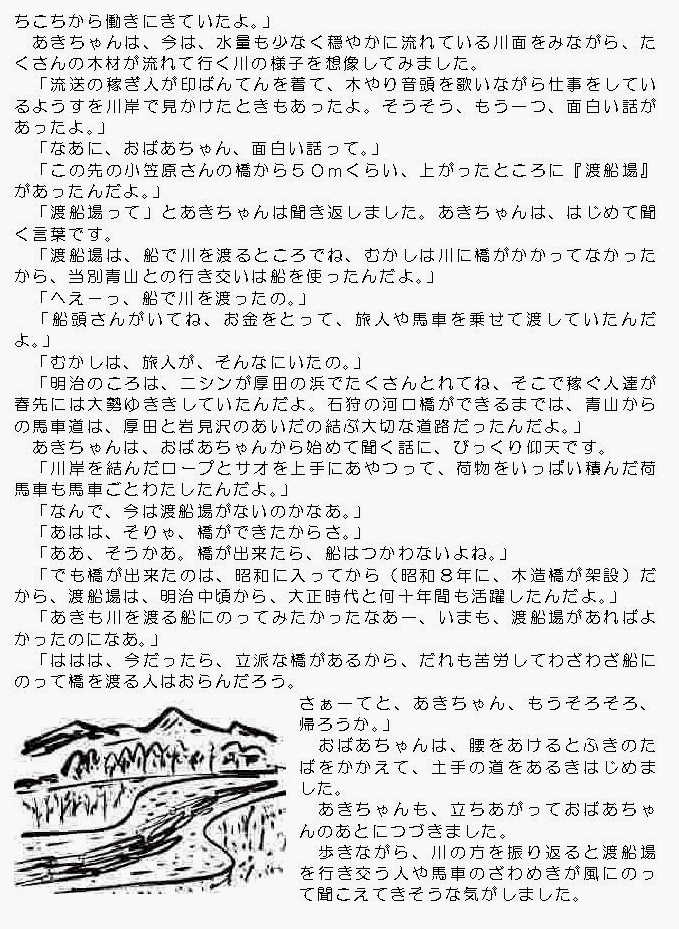 ちこちから働きにきていたよ。」
　あきちゃんは、今は、水量も少なく穏やかに流れている川面をみながら、た
くさんの木材が流れて行く川の様子を想像してみました。
　「流送の稼ぎ人が印ばんてんを着て、木やり音頭を歌いながら仕事をしてい
るようすを川岸で見かけたときもあったよ。そうそう、もう一つ、面白い話が
あったよ。」
　「なあに、おばあちゃん、面白い話って。」
　「この先の小笠原さんの橋から５０ｍくらい、上がったところに『渡船場』
があったんだよ。」
　「渡船場って」とあきちゃんは聞き返しました。あきちゃんは、はじめて聞
く言葉です。
　「渡船場は、船で川を渡るところでね、むかしは川に橋がかかってなかった
から、当別青山との行き交いは船を使ったんだよ。」
　「へえーっ、船で川を渡ったの。」
　「船頭さんがいてね、お金をとって、旅人や馬車を乗せて渡していたんだ
よ。」
　「むかしは、旅人が、そんなにいたの。」
　「明治のころは、ニシンが厚田の浜でたくさんとれてね、そこで稼ぐ人達が
春先には大勢ゆききしていたんだよ。石狩の河口橋ができるまでは、青山から
の馬車道は、厚田と岩見沢のあいだの結ぶ大切な道路だったんだよ。」
　あきちゃんは、おばあちゃんから始めて聞く話に、びっくり仰天です。
　「川岸を結んだロープとサオを上手にあやつって、荷物をいっぱい積んだ荷
馬車も馬車ごとわたしたんだよ。」
　「なんで、今は渡船場がないのかなあ。」
　「あはは、そりゃ、橋ができたからさ。」
　「ああ、そうかあ。橋が出来たら、船はつかわないよね。」
　「でも橋が出来たのは、昭和に入ってから（昭和８年に、木造橋が架設）だ
から、渡船場は、明治中頃から、大正時代と何十年間も活躍したんだよ。」
　「あきも川を渡る船にのってみたかったなあー、いまも、渡船場があればよ
かったのになあ。」
　「ははは、今だったら、立派な橋があるから、だれも苦労してわざわざ船に
のって橋を渡る人はおらんだろう。
さぁーてと、あきちゃん、もうそろそろ、
帰ろうか。」
　おばあちゃんは、腰をあけるとふきのた
ばをかかえて、土手の道をあるきはじめま
した。
　あきちゃんも、立ちあがっておばあちゃ
んのあとにつづきました。
　歩きながら、川の方を振り返ると渡船場
を行き交う人や馬車のざわめきが風にのっ
て聞こえてきそうな気がしました。